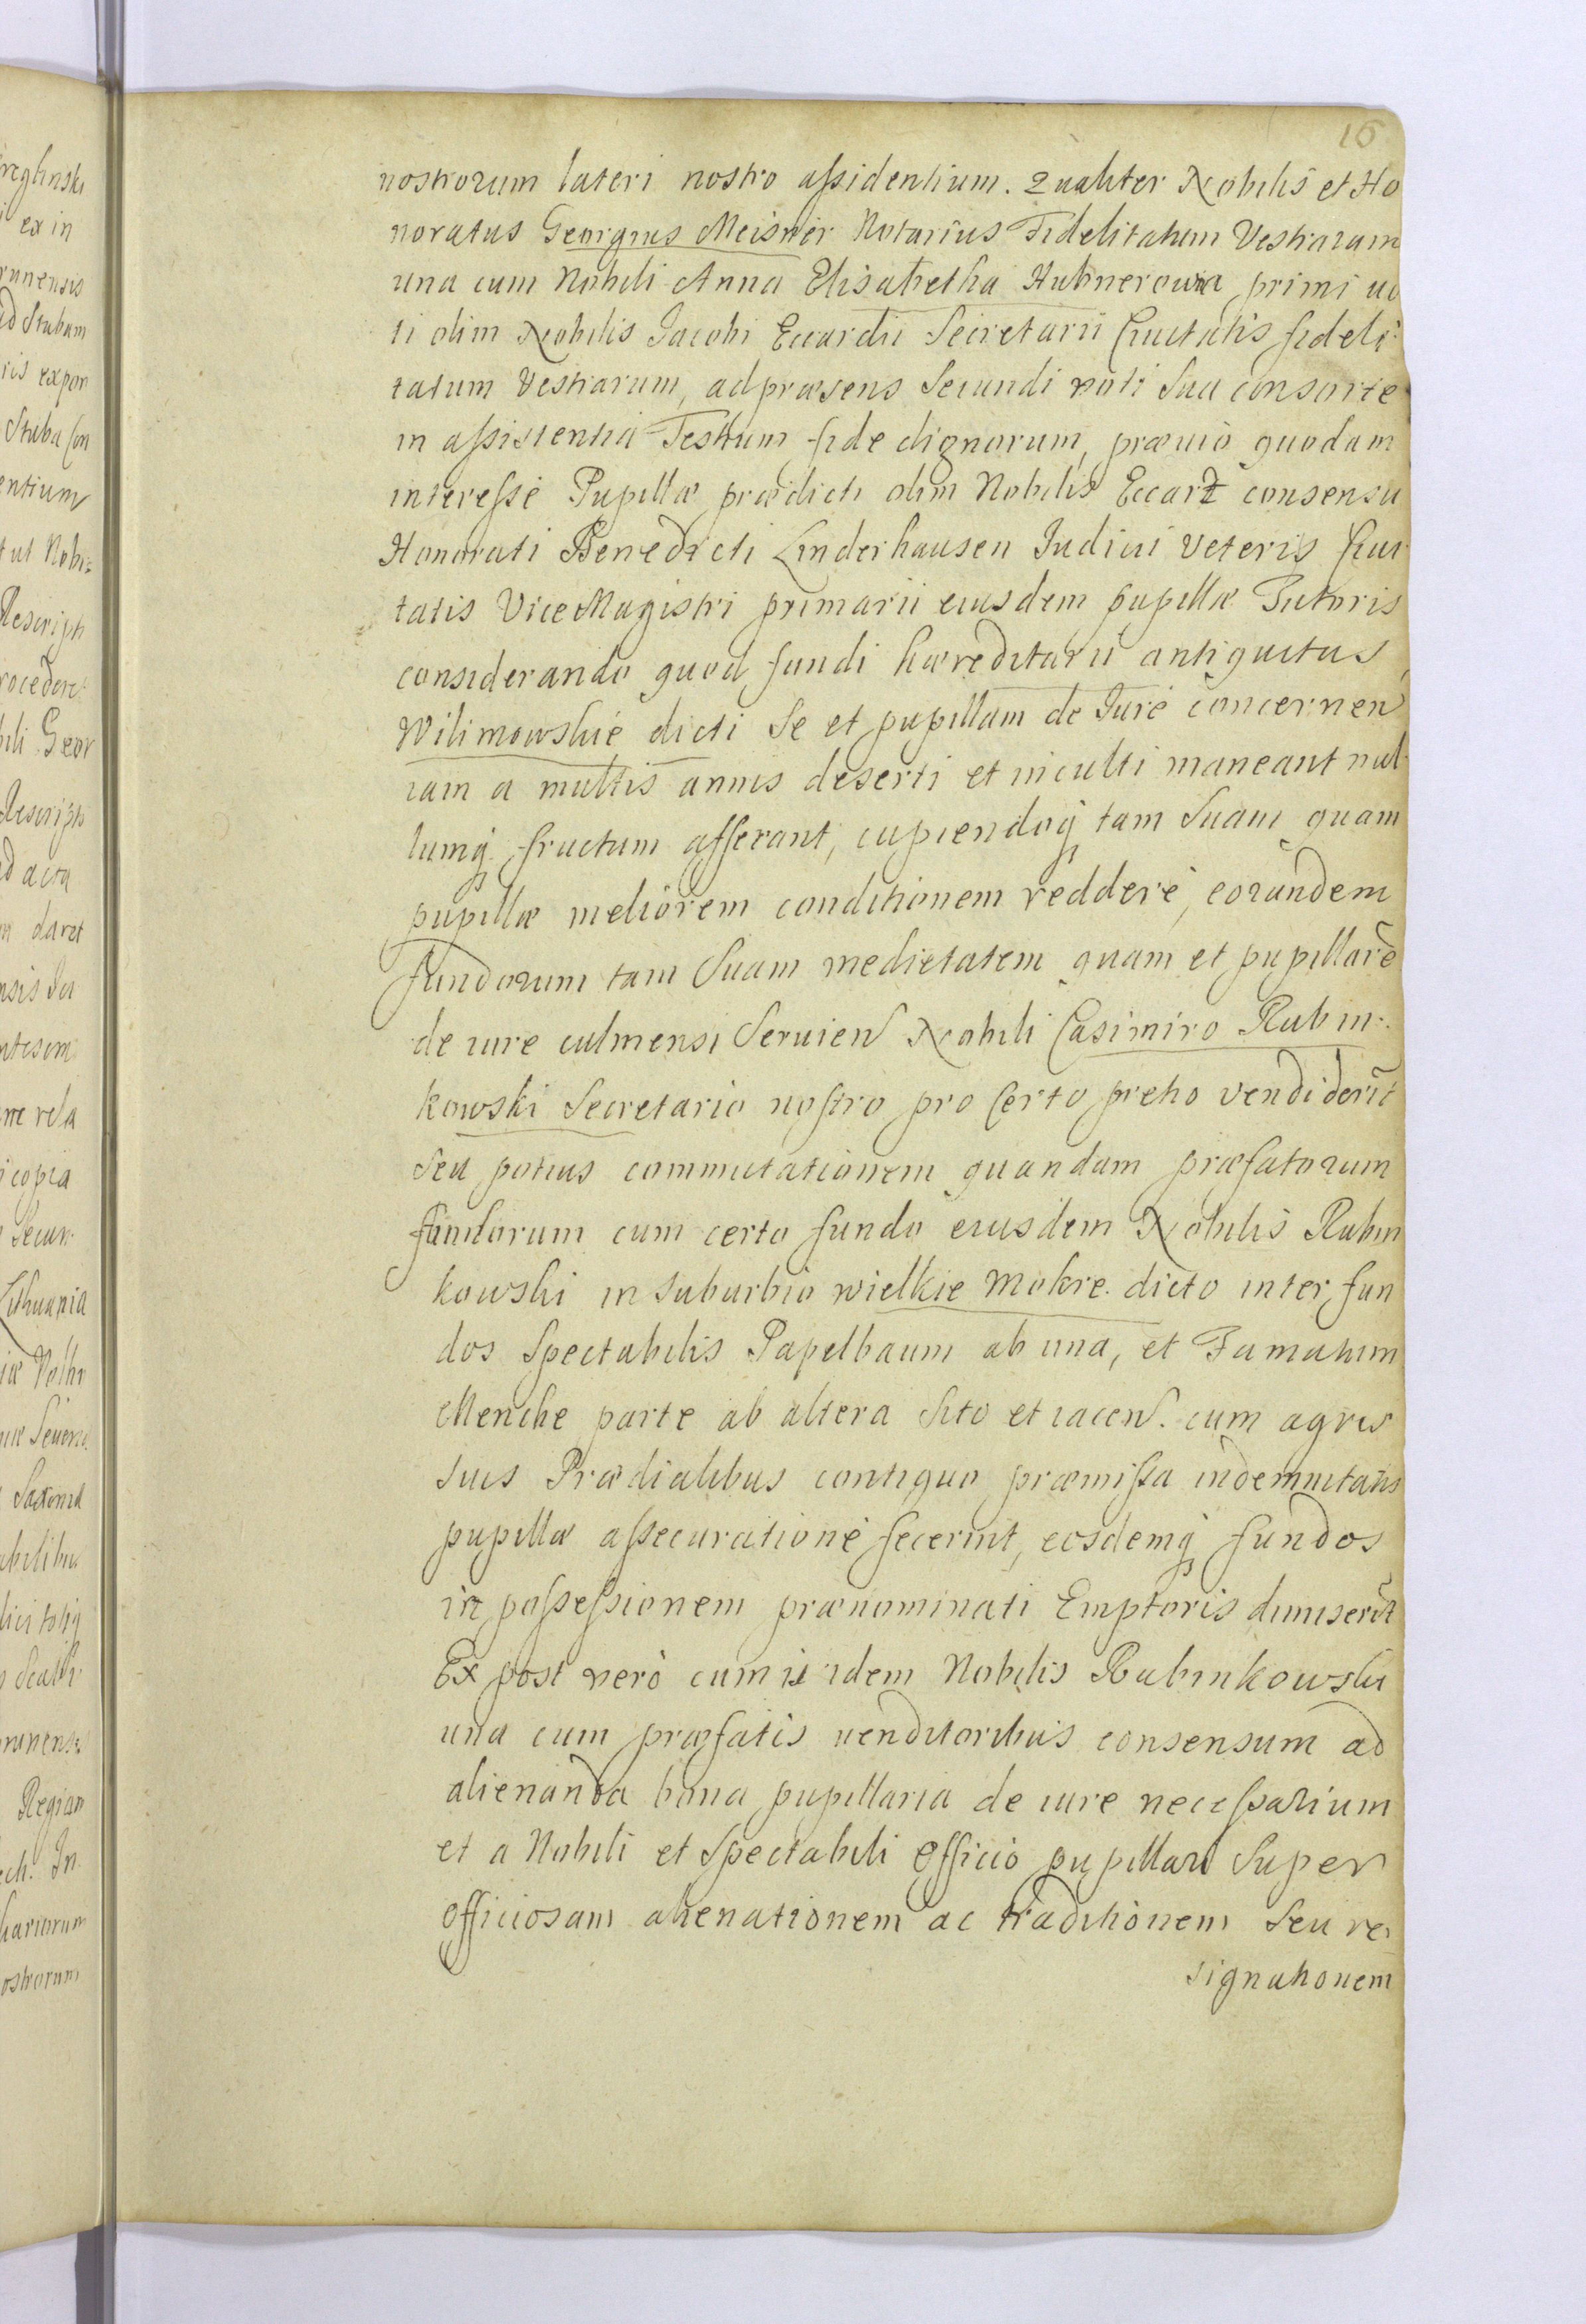 16
nostrorum lateri nostro assidentium. Qualiter Nobilis et Ho
noratus Georgius Meisner Notarius Fidelitatum Vestrarum
una cum Nobili Anna Elisabetha Hubnerowna primi uo
ti olim Nobilis Jacobi Eccardii Secretarii Ciuitatis fideli
tatum Vestrarum, ad præsens Secundi voti Sua consorte
in assistentia Testium fide dignorum, præuio quodam
interesse Pupillæ prædicti olim Nobilis Eccart consensu
Honorati Benedicti Linderhausen Judicii Veteris Ciui
tatis Vice Magistri primarii eiusdem pupillæ Tutoris
considerando quod fundi hæreditarii antiquitus
Wilimowskie dicti Se et pupillam de Jure concernen
iam a multis annis deserti et inculti maneant nul
lumq fructum afferant, cupiendoq tam Suam quam
pupillæ meliorem conditionem reddere, eorundem
fundorum tam Suam medietatem quam et pupillarẽ
de iure culmensi Seruien Nobili Casimiro Rubin
kowski Secretario nostro pro Certo pretio vendiderĩt
Seu potius commutationem quandam præfatorum
fundorum cum certo fundo eiusdem Nobilis Rubin
kowski in Suburbio wielkie Mokre dicto inter fun
dos Spectabilis Papelbaum ab una, et Famatum
Menche parte ab altera Sito et iacen. cum agris
suis Prædialibus contiguo præmissa indemnitatis
pupillæ assecuratione fecerint, eosdemq fundos
in possessionem prænominati Emptoris dimiserĩt
Ex post verò cum idem Nobilis Rubinkowski
una cum præfatis uenditoribus consensum ad
alienanda bona pupillaria de iure necessarium
et a Nobili et Spectabili Officio pupillari Super
officiosam alienationem ac traditionem Seu re
signationem